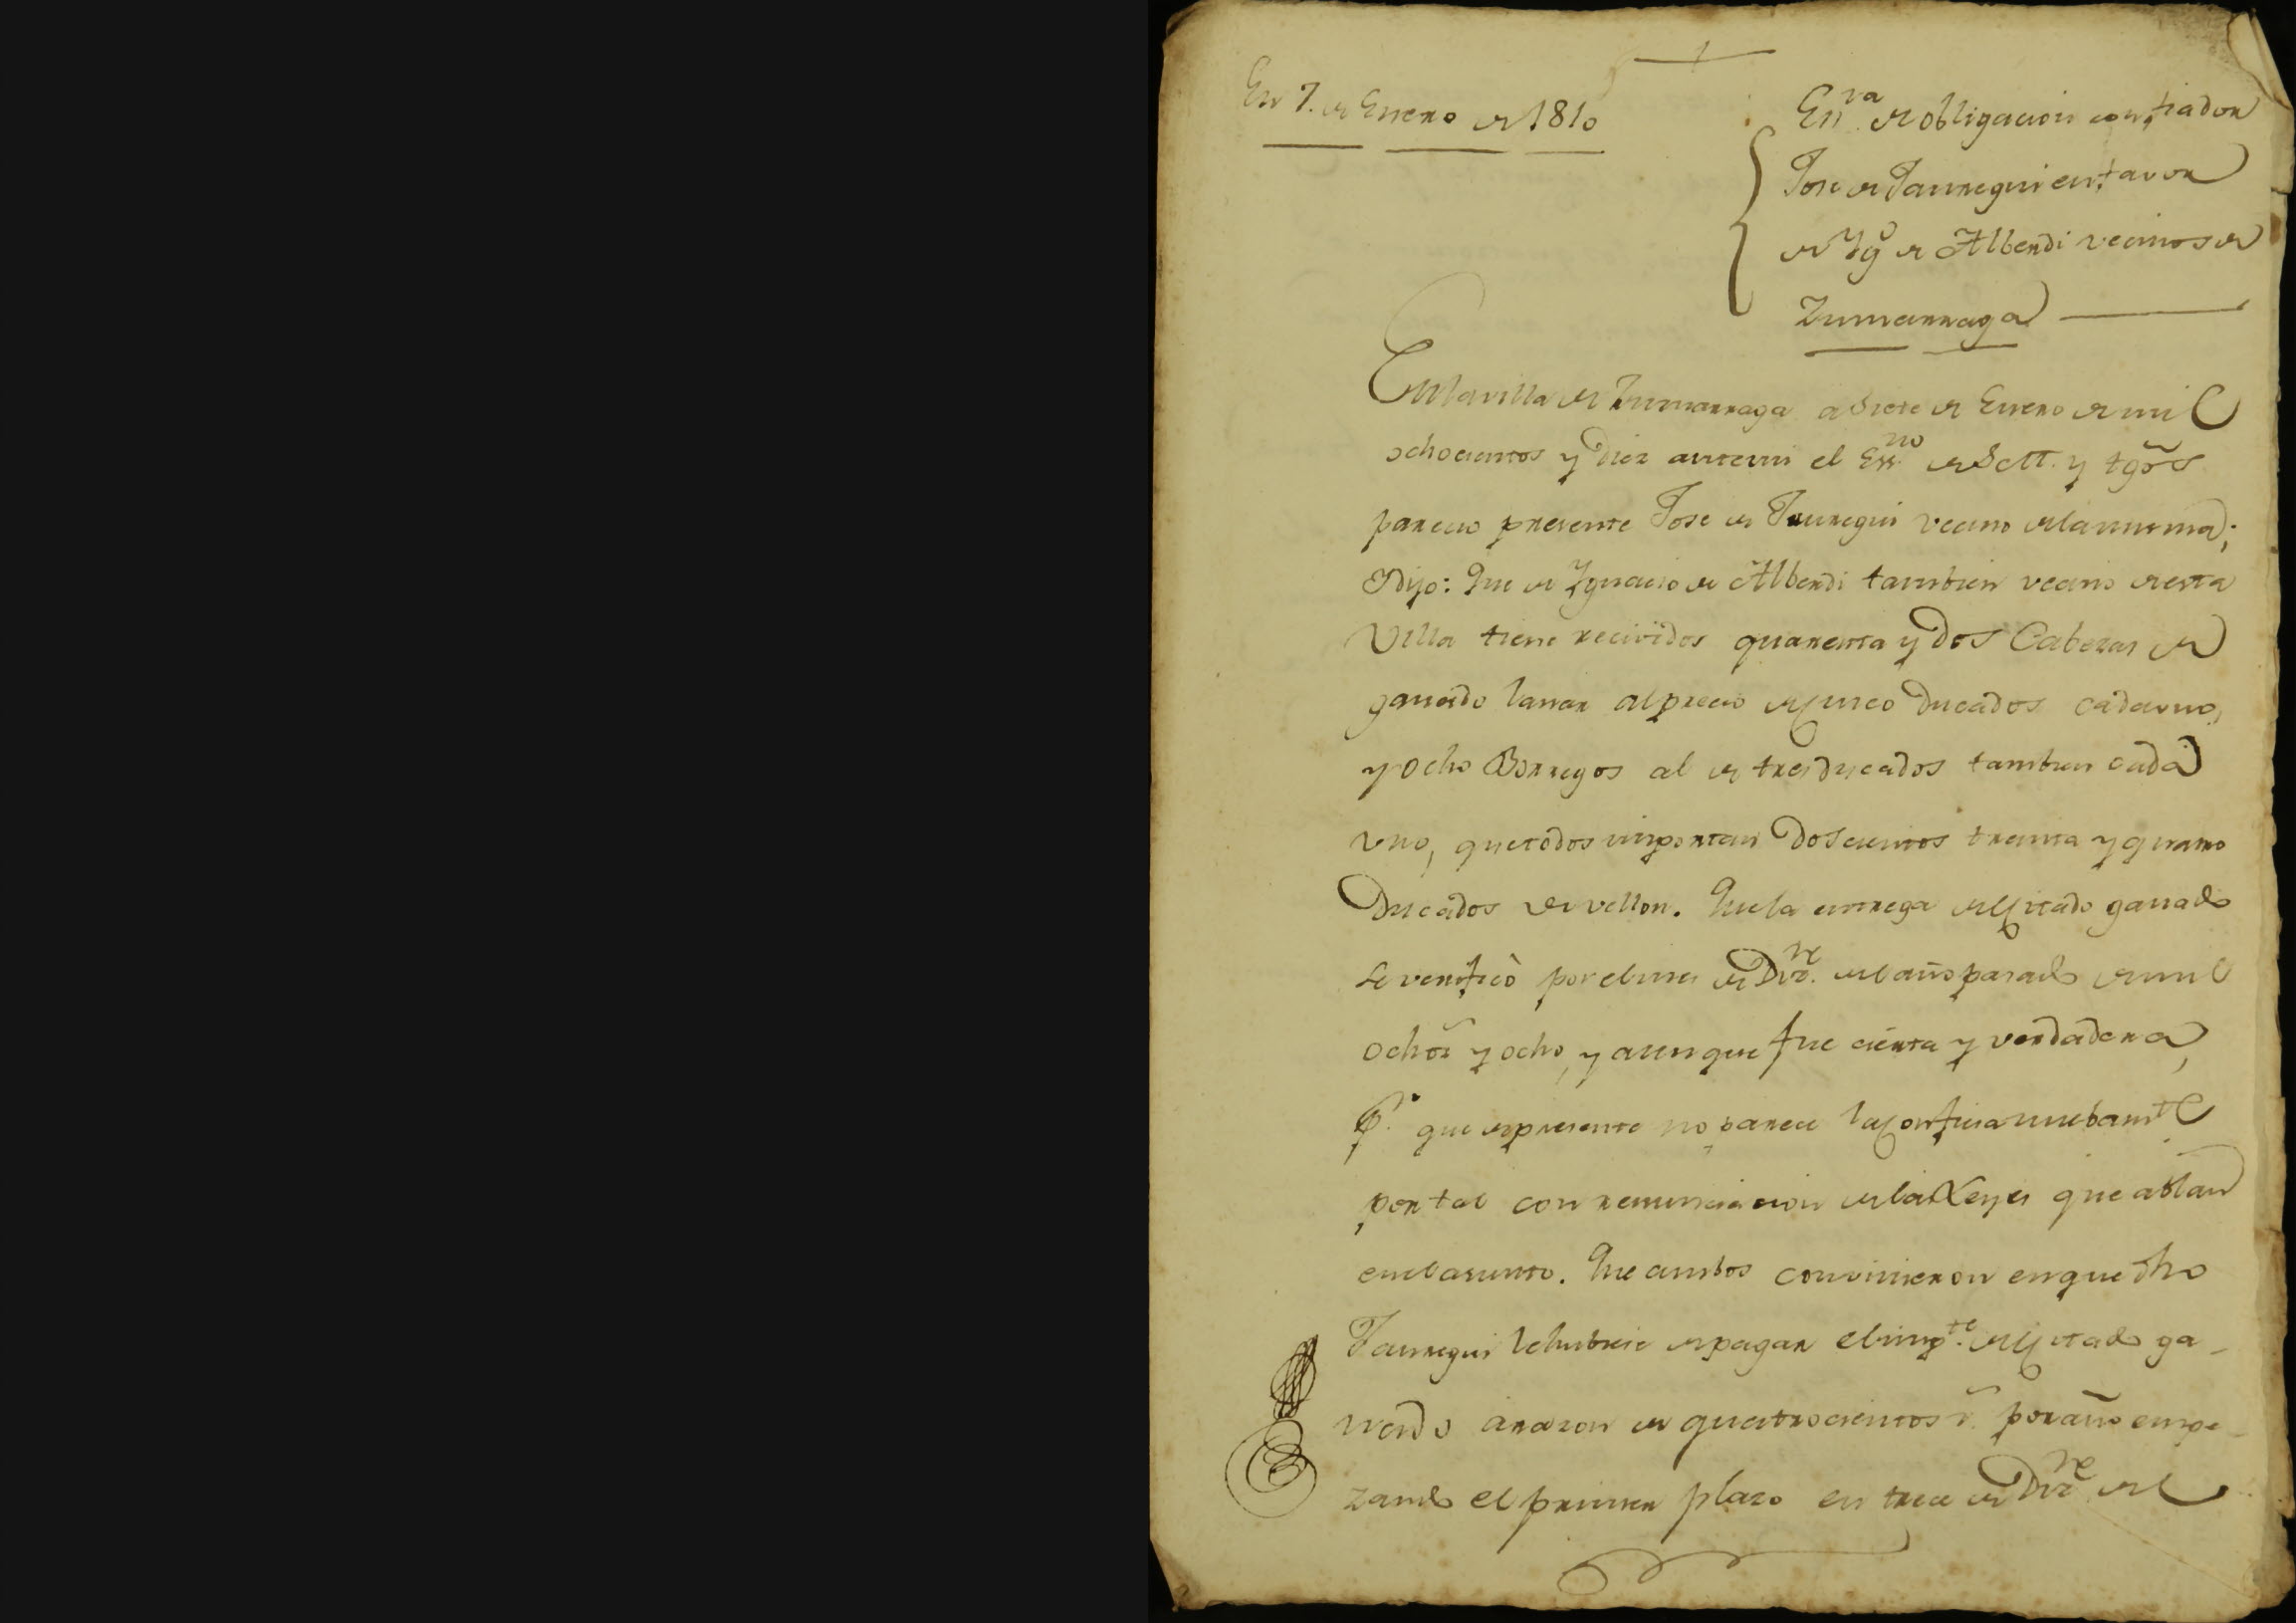 En 7. de Enero de 1810
Ess.va de obligacion con fiador
Jose de Jauregui en favor
de Ygo de Alberdi vecinos de
Zumarraga
En la villa de Zumarraga a siete de Enero de mil
ochocientos y diez ante mi el Ess.no de S.M. y tgõs
parecio presente Jose de Jauregui vecino de la misma;
Y dijo: Que de Ygnacio de Alberdi tambien vecino de esta
Villa tiene recividos quarenta y dos Cabezas de
ganado lanar al precio de cinco Ducados cada uno,
y ocho Borregos al de tres ducados tambien cada
uno, que todos importan Doscientos treinta y quatro
Ducados de vellon. Que la entrega del citado ganado
se verificò por el mes de Dizre. del año pasado de mil
ochõs y ocho, y aunque fue cierta y verdadera,
p.r que de presente no parece la confiesa nuebam.te
por tal con renunciacion de las Leyes que ablan
en el asunto. Que ambos convinieron en que dho
Jauregui le hubiese de pagar el imp.te del citado ga-
nado a razon de quatrocientos r.s por año empe-
zando el primer plazo en trece de Dizre del